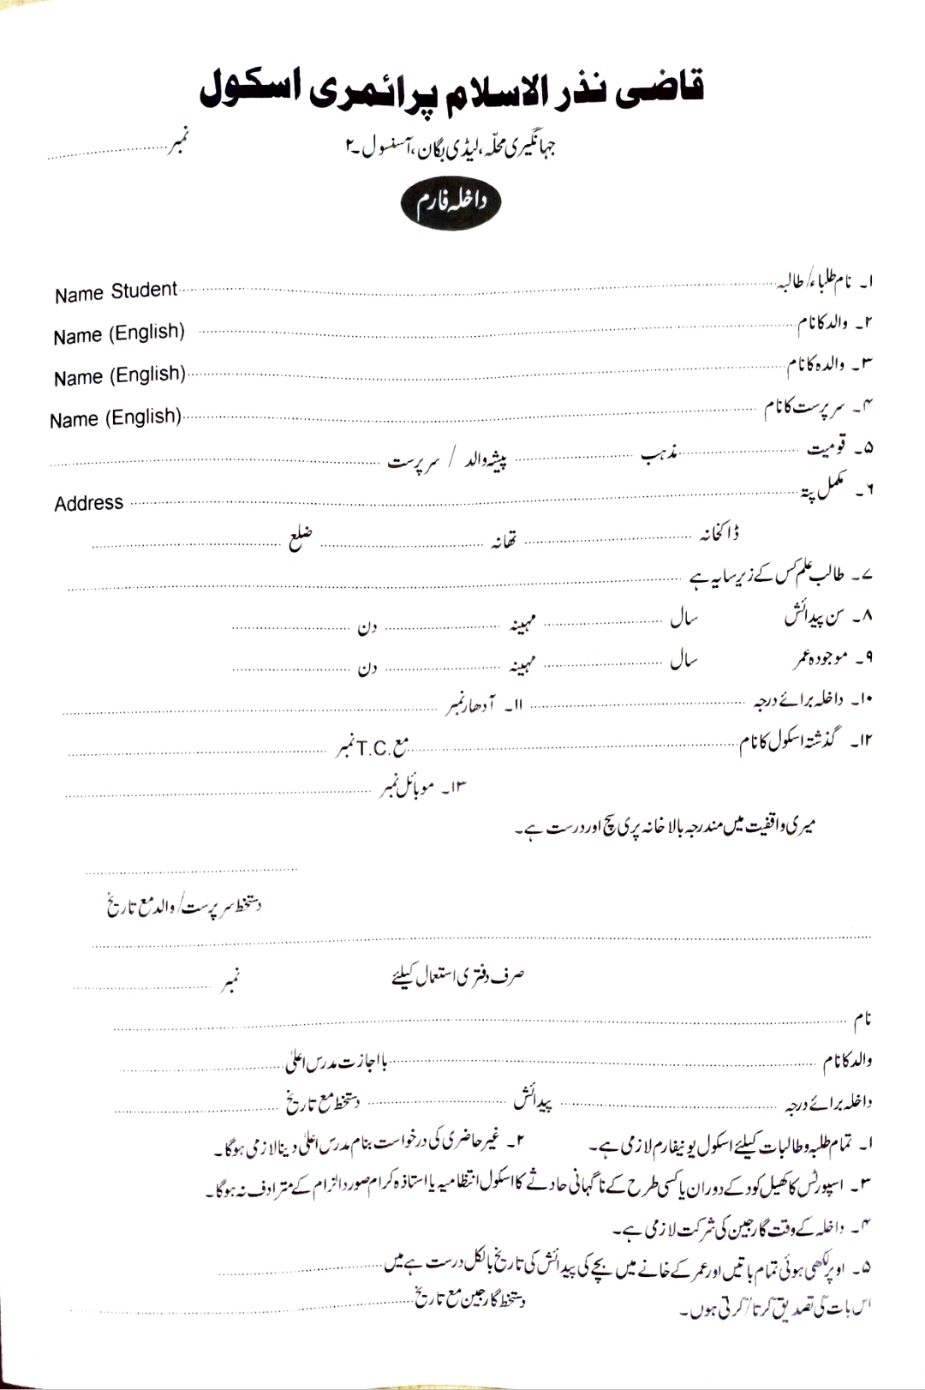 قاضی نذر الاسلام پرائمری اسکول
جہانگیری محلّہ، لیڈی بگان، آسنسول۔۲ نمبر
داخلہ فارم
۱۔ نام طلباء/طالبہ Name Student
۲۔ والد کا نام Name (English)
۳۔ والدہ کا نام Name (English)
۴۔ سرپرست کا نام Name (English)
۵۔ قومیت مذہب پیشہ والد / سرپرست
۶۔ مکمل پتہ Address
ڈاکخانہ تھانہ ضلع
۷۔ طالب علم کس کے زیر سایہ ہے
۸۔ سن پیدائش سال مہینہ دن
۹۔ موجودہ عمر سال مہینہ دن
۱۰۔ داخلہ برائے درجہ ۱۱۔ آدھار نمبر
۱۲۔ گذشتہ اسکول کا نام مع .T.C نمبر
۱۳۔ موبائل نمبر
میری واقفیت میں مندرجہ بالا خانہ پری سچ اور درست ہے۔
دستخط سرپرست/والد مع تاریخ
صرف دفتری استعمال کیلئے نمبر
نام
والد کا نام بااجازت مدرس اعلیٰ
داخلہ برائے درجہ پیدائش دستخط مع تاریخ
۱۔ تمام طلبہ و طالبات کیلئے اسکول یونیفارم لازمی ہے۔ ۲۔ غیر حاضری کی درخواست بنام مدرس اعلیٰ دینا لازمی ہوگا۔
۳۔ اسپورٹس کا کھیل کود کے دوران یا کسی طرح کے ناگہانی حادثے کا اسکول انتظامیہ یا استاذہ کرام مورد الزام کے مترادف نہ ہوگا۔
۴۔ داخلہ کے وقت گارجین کی شرکت لازمی ہے۔
۵۔ اوپر لکھی ہوئی تمام باتیں اور عمر کے خانے میں بچے کی پیدائش کی تاریخ بالکل درست ہے میں
اس بات کی تصدیق کرتا/کرتی ہوں۔ دستخط گارجین مع تاریخ